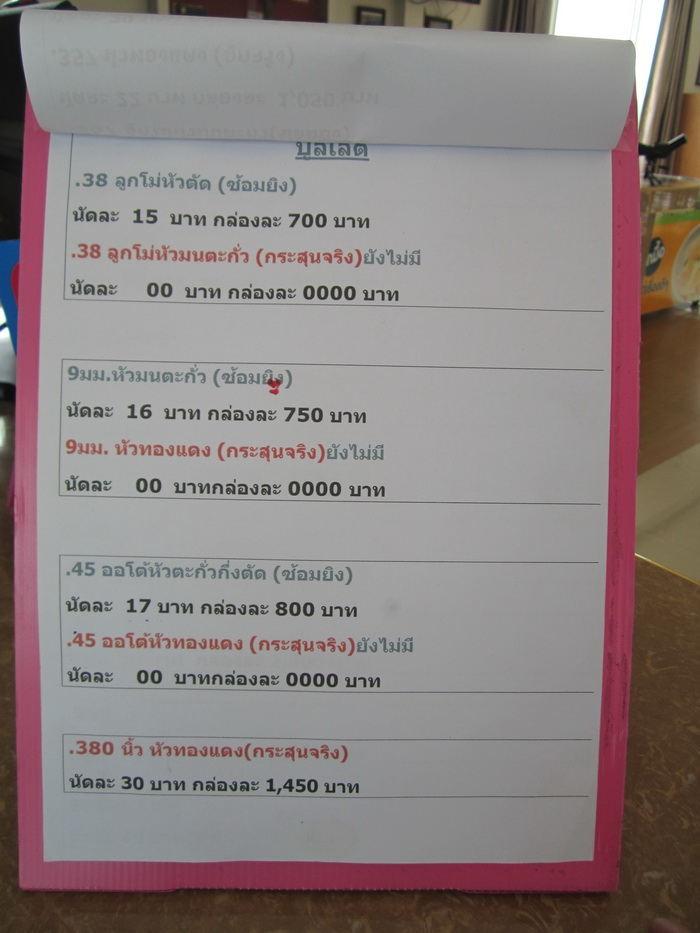 บูลเลต
.38 ลูกโม่หัวตัด (ซ้อมยิง)
นัดละ 15 บาท กล่องละ 700 บาท
.38 ลูกโม่หัวมนตะกั่ว (กระสุนจริง)ยังไม่มี
นัดละ 00 บาท กล่องละ 0000 บาท
9มม.หัวมนตะกั่ว (ซ้อมยิง)
นัดละ 16 บาท กล่องละ 750 บาท
9มม. หัวทองแดง (กระสุนจริง)ยังไม่มี
นัดละ 00 บาทกล่องละ 0000 บาท
.45 ออโต้หัวตะกั่วกึ่งตัด (ซ้อมยิง)
นัดละ 17 บาท กล่องละ 800 บาท
.45 ออโต้หัวทองแดง (กระสุนจริง)ยังไม่มี
นัดละ 00 บาทกล่องละ 0000 บาท
.380 นิ้ว หัวทองแดง(กระสุนจริง)
นัดละ 30 บาท กล่องละ 1,450 บาท